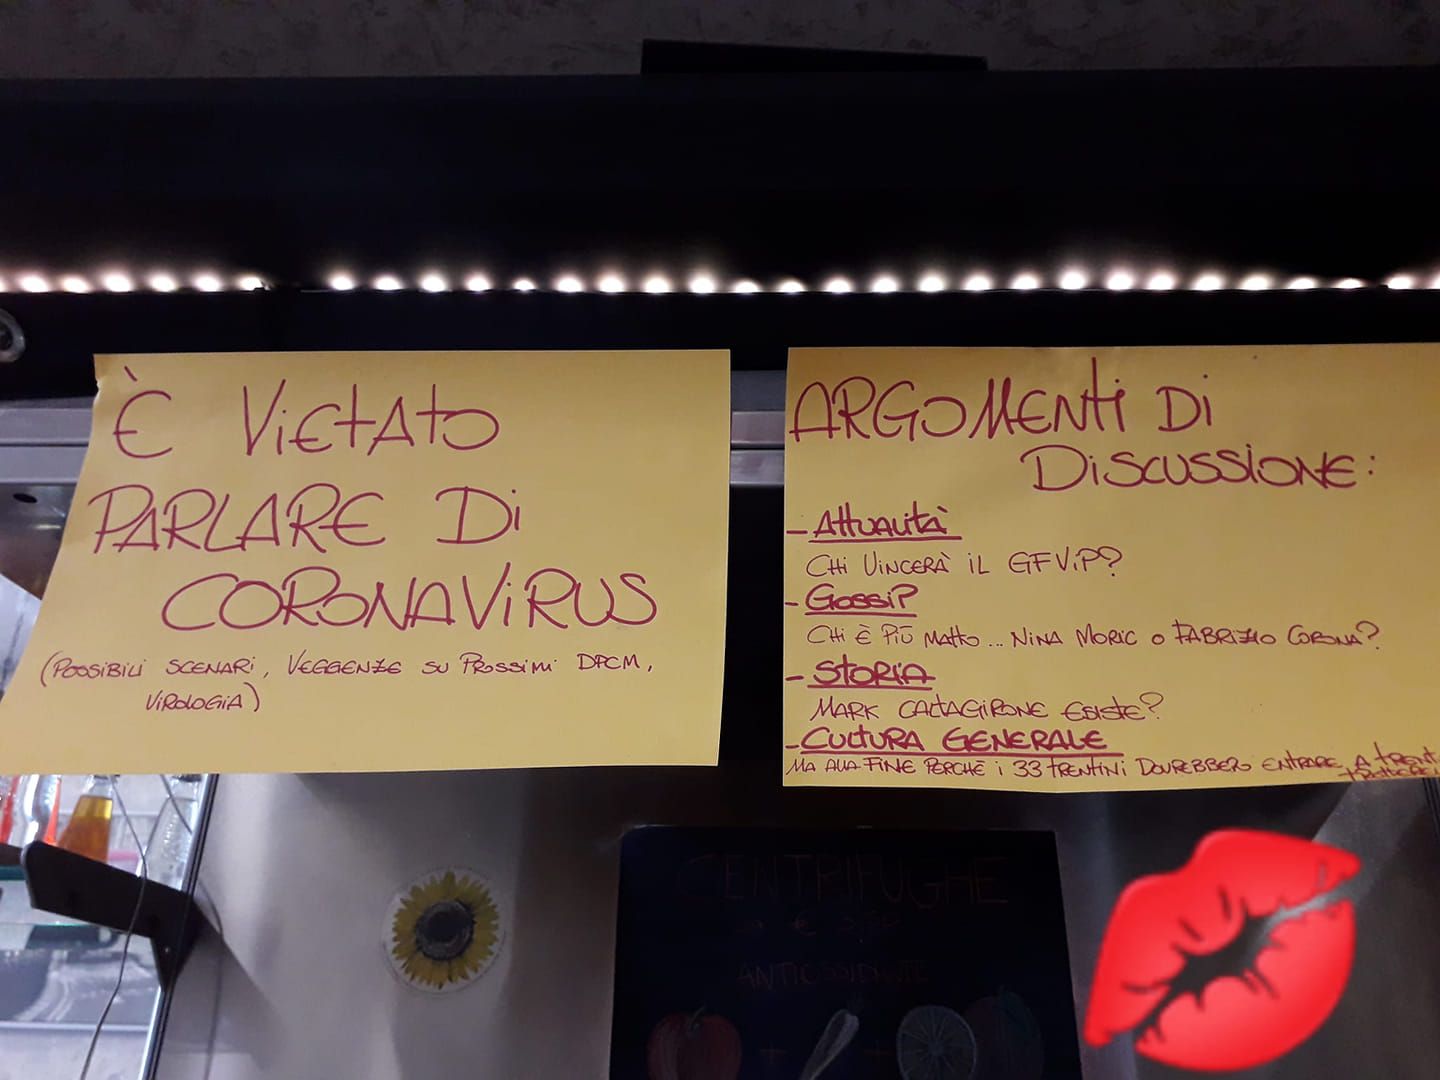 È VIETATO
PARLARE DI
CORONAVIRUS
(POSSIBILI SCENARI, VEGGENZE SU PROSSIMI DPCM,
VIROLOGIA)
ARGOMENTI DI
DISCUSSIONE:
- ATTUALITÀ
CHI VINCERÀ IL GFVIP?
- GOSSIP
CHI È PIÙ MATTO... NINA MORIC O FABRIZIO CORONA?
- STORIA
MARK CALTAGIRONE ESISTE?
- CULTURA GENERALE
MA ALLA FINE PERCHÉ I 33 TRENTINI DOVREBBERO ENTRARE A
CENTRIFUGHE
ANTIOSSIDANTE